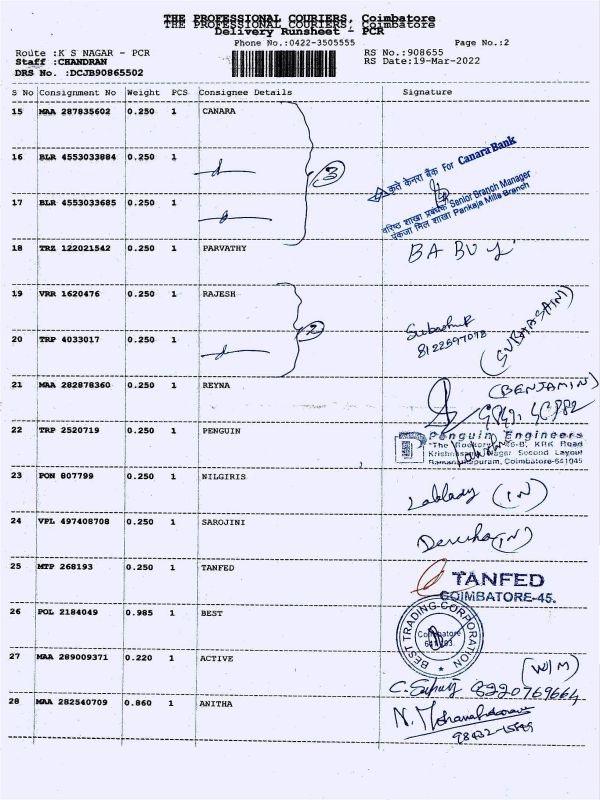 THE PROFESSIONAL COURIERS, Coimbatore
Delivery Runsheet - PCR
Phone No.:0422-3505555 Page No.:2
Route :K S NAGAR - PCR RS No.:908655
Staff :CHANDRAN RS Date:19-Mar-2022
DRS No. :DCJB90865502
S No Consignment No Weight PCS Consignee Details Signature
15 MAA 287835602 0.250 1 CANARA
16 BLR 4553033884 0.250 1
3
कृते केनरा बैंक For Canara Bank
17 BLR 4553033685 0.250 1
वरिष्ठ शाखा प्रबंधक Senior Branch Manager
पंकजा मिल शाखा Pankaja Mills Branch
18 TRZ 122021542 0.250 1 PARVATHY BABU
19 VRR 1620476 0.250 1 RAJESH
2
20 TRP 4033017 0.250 1
8122597078
21 MAA 282878360 0.250 1 REYNA (BENJAMIN)
22 TRP 2520719 0.250 1 PENGUIN
Penguin Engineers
"The Rookery" 45-B, KRK Road
Krishnasamy Nagar Second Layout
Ramanathapuram, Coimbatore-641045
23 PON 807799 0.250 1 NILGIRIS (IN)
24 VPL 497408708 0.250 1 SAROJINI (IN)
25 MTP 268193 0.250 1 TANFED
TANFED
COIMBATORE-45.
26 POL 2184049 0.985 1 BEST
BEST TRADING CORPORATION
Coimbatore
27 MAA 289009371 0.220 1 ACTIVE (W/M)
8220769664
28 MAA 282540709 0.860 1 ANITHA